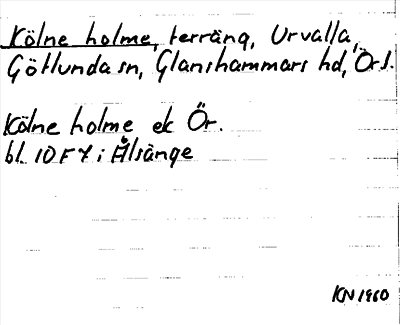 Kölne holme, terräng, Urvalla,
Götlunda sn, Glanshammars hd, Örl.
Kölne holme ek Ör.
bl. 10 F 7 i Ålsänge
KN 1960